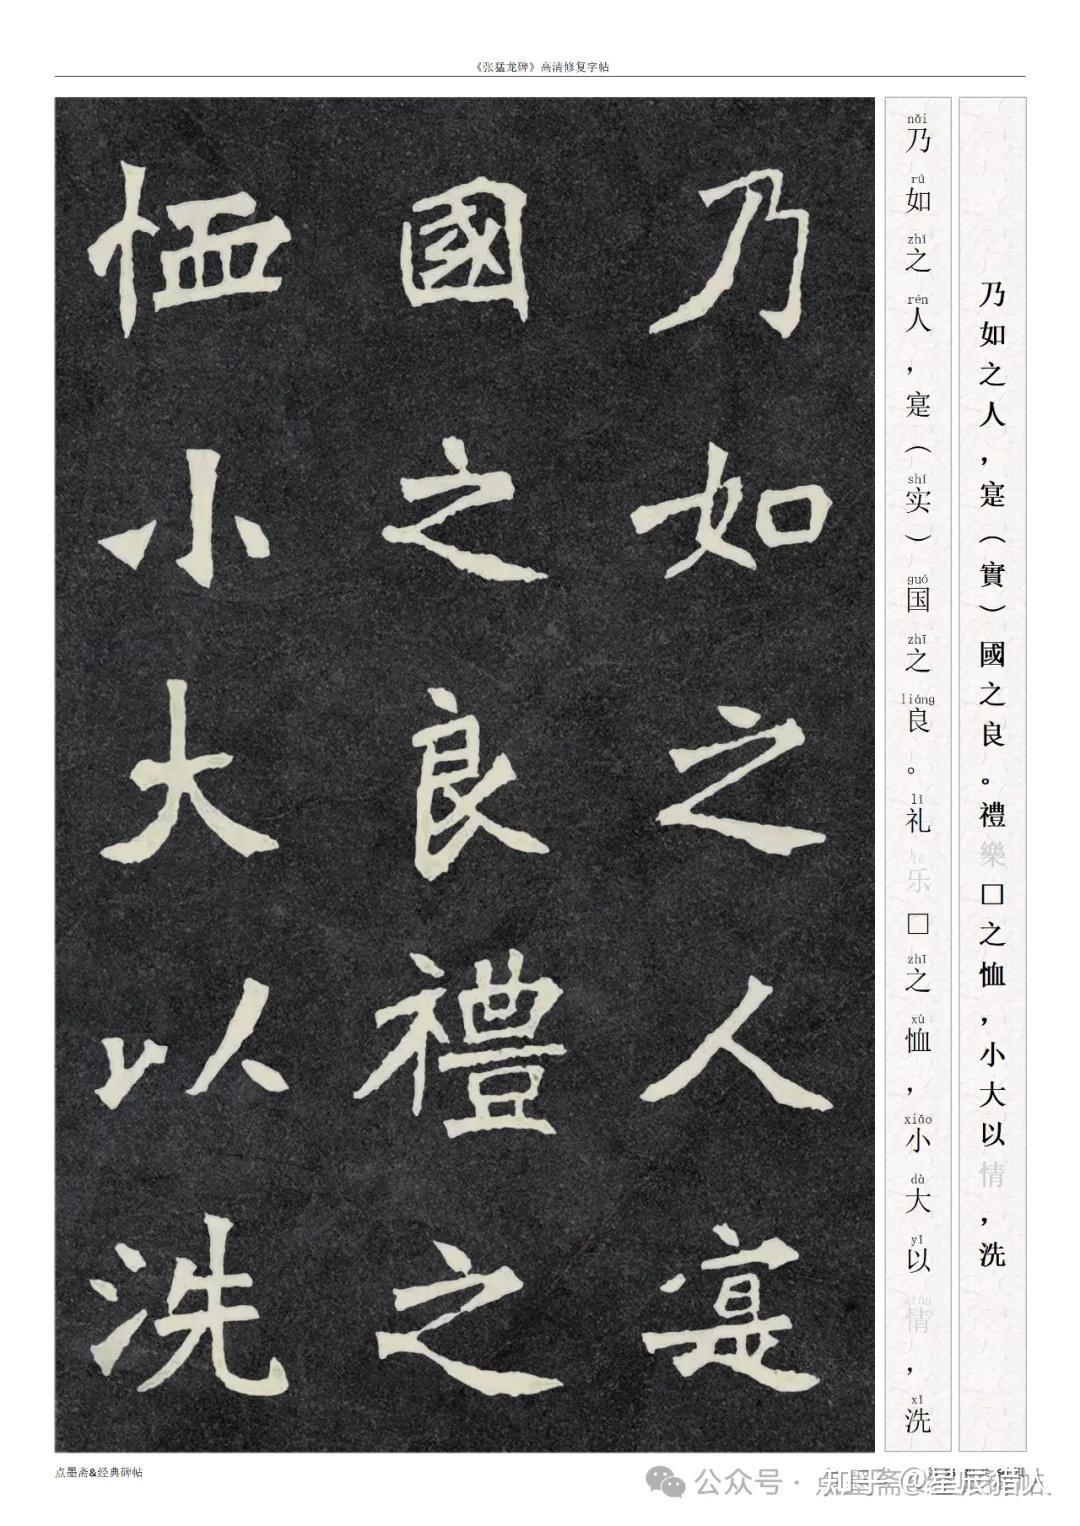 《张猛龙碑》高清修复字帖
乃如之人寔
國之良禮之
恤小大以洗
nǎi rú zhī rén shí guó zhī liáng lǐ zhī xù xiǎo dà yǐ qíng xǐ
乃如之人，寔（实）国之良。礼乐□之恤，小大以情，洗
乃如之人，寔（實）國之良。禮樂□之恤，小大以情，洗
点墨斋&经典碑帖
公众号·点墨斋&经典碑帖
知乎 @星辰猎人